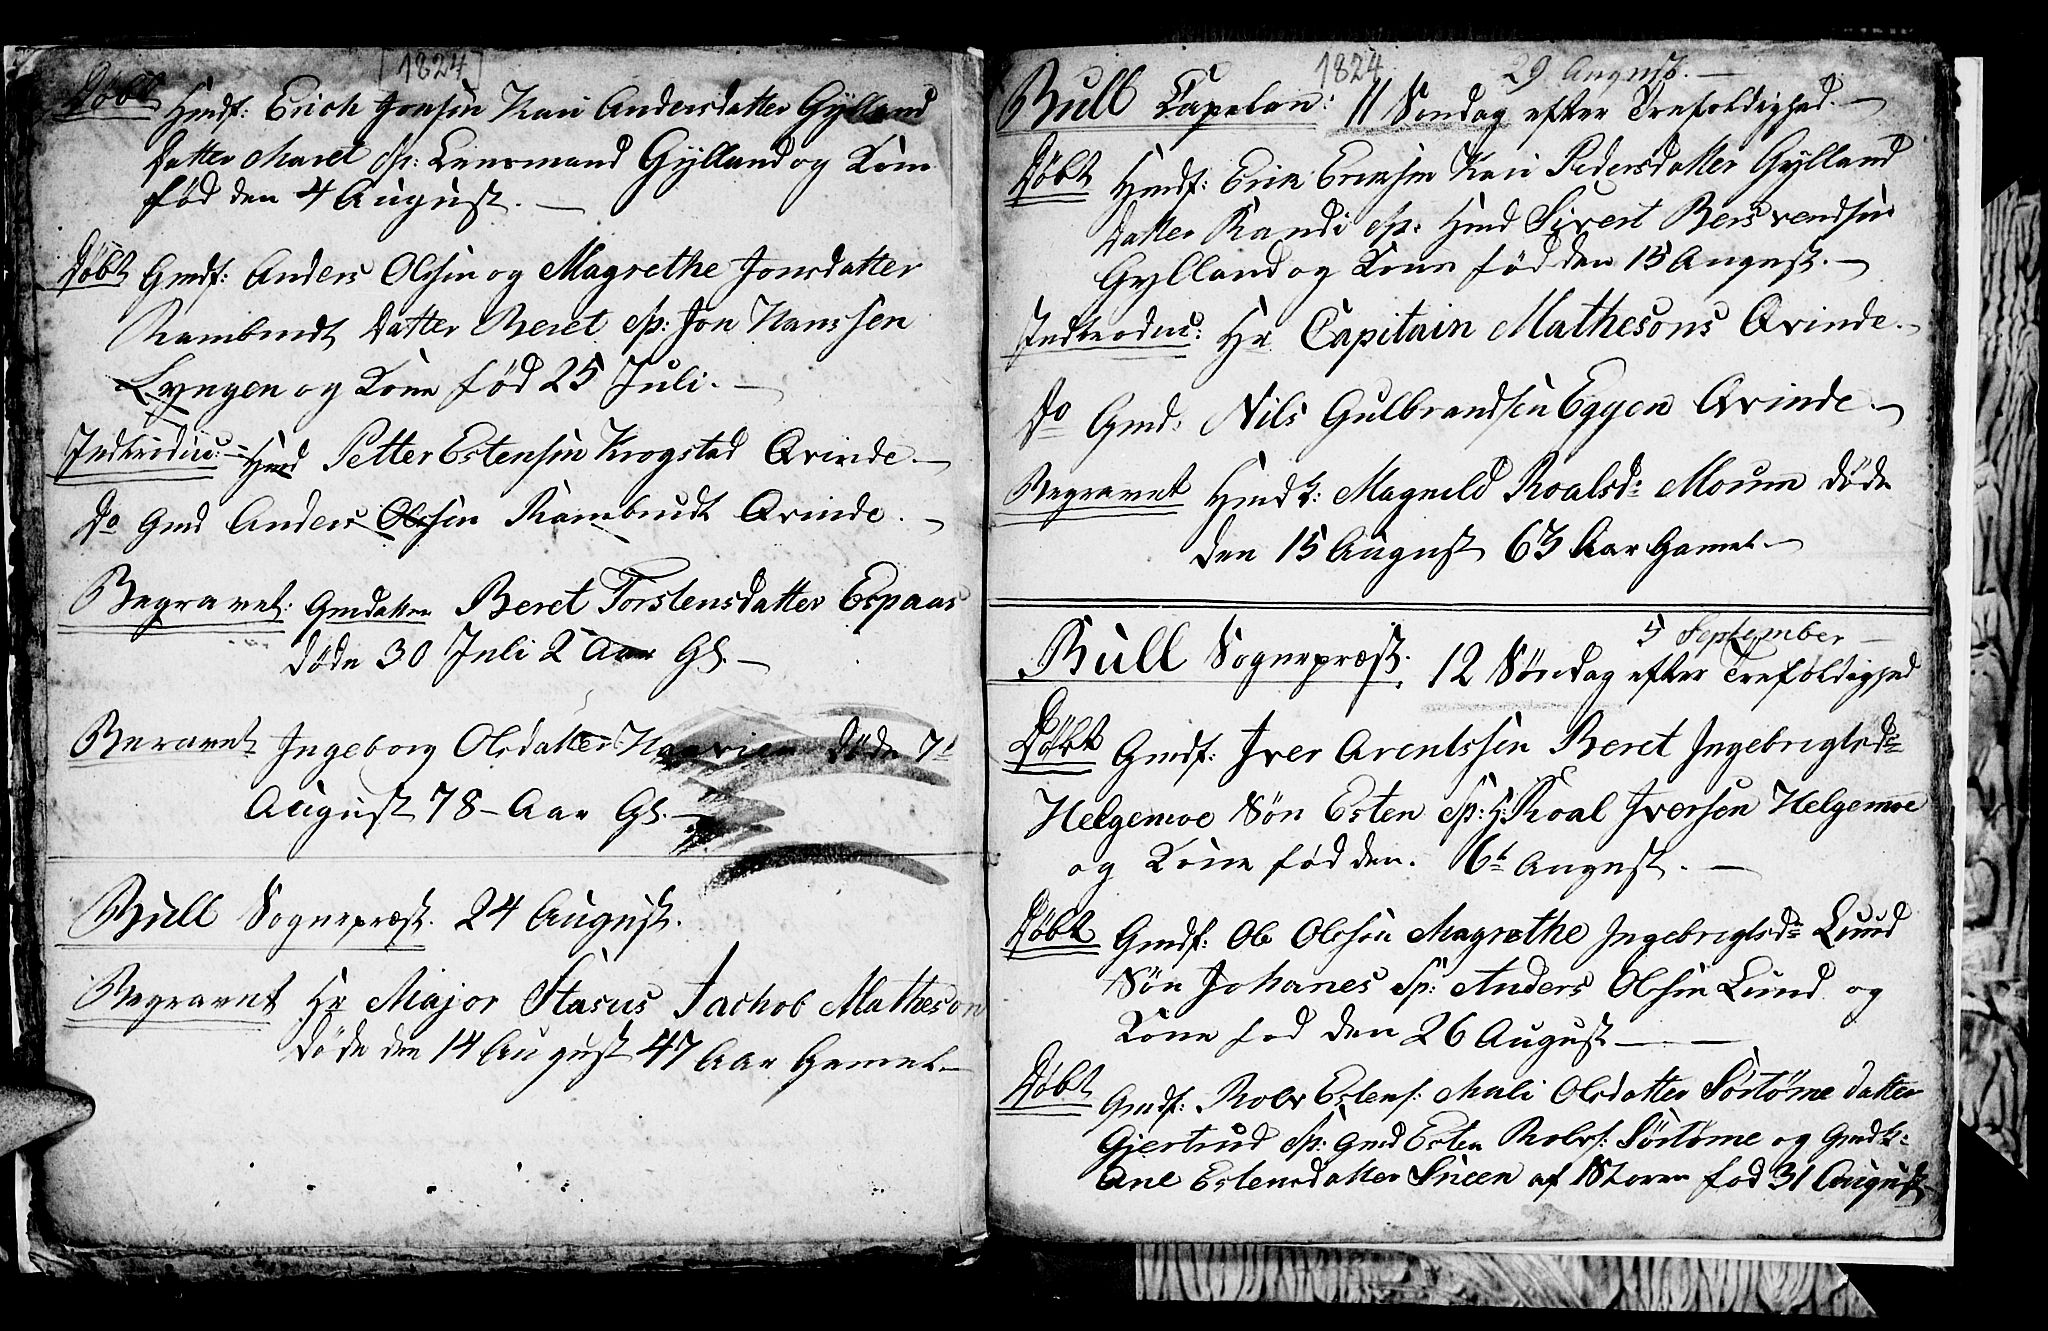 [1824]
Döbt Hmdf: Erich Jonsen Kari Andersdatter Gylland
Datter Maret Sp: Lensmand Gylland og Kone
föd den 4 August. —
Döbt Gmdf: Anders Olssen og Magrethe Jonsdatter
Rambudt Datter Beret Sp: Jon Hanssen
Lyngen og Kone föd 25 Juli. —
Indtroduc: Hmd Petter Estensen Krogstad Qvinde. —
Do Gmd Anders Olssen Rambudt Qvinde. —
Begravet: Gmdatter Beret Torstensdatter Espaas
döde 30 Juli 2 Aar Gl. —
Beravet Ingeborg Olsdatter döde 7t
August 78 - Aar Gl. —
Bull Sognepræst. 24 August.
Begravet Hr Major Stasus Jachob Matheson
döde den 14 August 47 Aar Gamel —
1824 29 August. —
Bull Capelan: 11 Söndag efter Trefoldighed. —
Döbt Hmdf: Erik Eriksen Kari Pedersdatter Gylland
Datter Randi Sp: Hmd Sivert Bersvendsen
Gylland og Kone föd den 15 August. —
Indtroduc: Hr Capitain Mathesons Qvinde. —
Do Gmd: Nils Gulbrandsen Eggen Qvinde. —
Begravet Hmdk: Magnild Roalsd: Moum döde
den 15 August 63 Aar Gamel —
5 September —
Bull Sognepræst. 12 Söndag efter Trefoldighed
Döbt Gmdf: Iver Arentssen Beret Ingebrigtsd:
Helgemoe Sön Esten Sp: H: Roal Iversen Helgemoe
og Kone föd den. 6t August. —
Döbt Gmdf: Ole Olssen Magrethe Ingebrigtsd: Lund
Sön Johanes Sp: Anders Olssen Lund og
Kone fod den 26 August — —
Döbt Gmdf: Rolv Estens: Mali Olsdatter Sörtöme Datter
Gjertrud Sp: Gmd Esten Rolvs: Sörtöme og Gmdk:
Ane Estensdatter Sneen af Stören fod 31 August